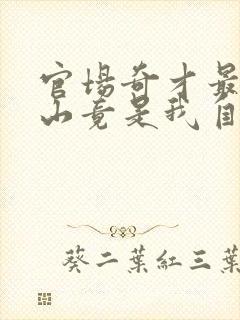 官场奇才最
山竟是我自
葵二葉紅三葉